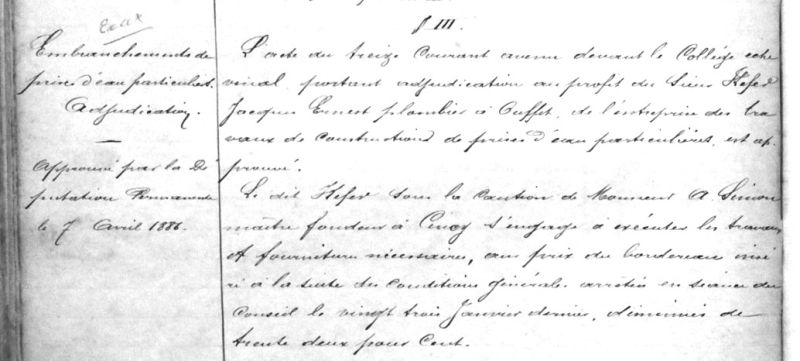 Eaux
Embranchements de
prises d'eau particulières.
Adjudication.
Approuvé par la Dé
putation Permanente
le 7 Avril 1886.
§ III.
L'acte du treize Courant avenu devant le Collège éche
vinal, portant adjudication au profit du Sieur
Jacques Ernest plombier à Ouffet, de l'entreprise des tra
vaux de constructions de prises d'eau particulières, est ap
prouvé.
Le dit sous la Caution de Monsieur A. Simon
maître fondeur à s'engage à exécuter les travaux
et fourniture nécessaire, au prix du bordereau insé
ré à la suite des Conditions générales arrêtées en séance du
Conseil le vingt trois Janvier dernier, diminués de
trente deux pour Cent.